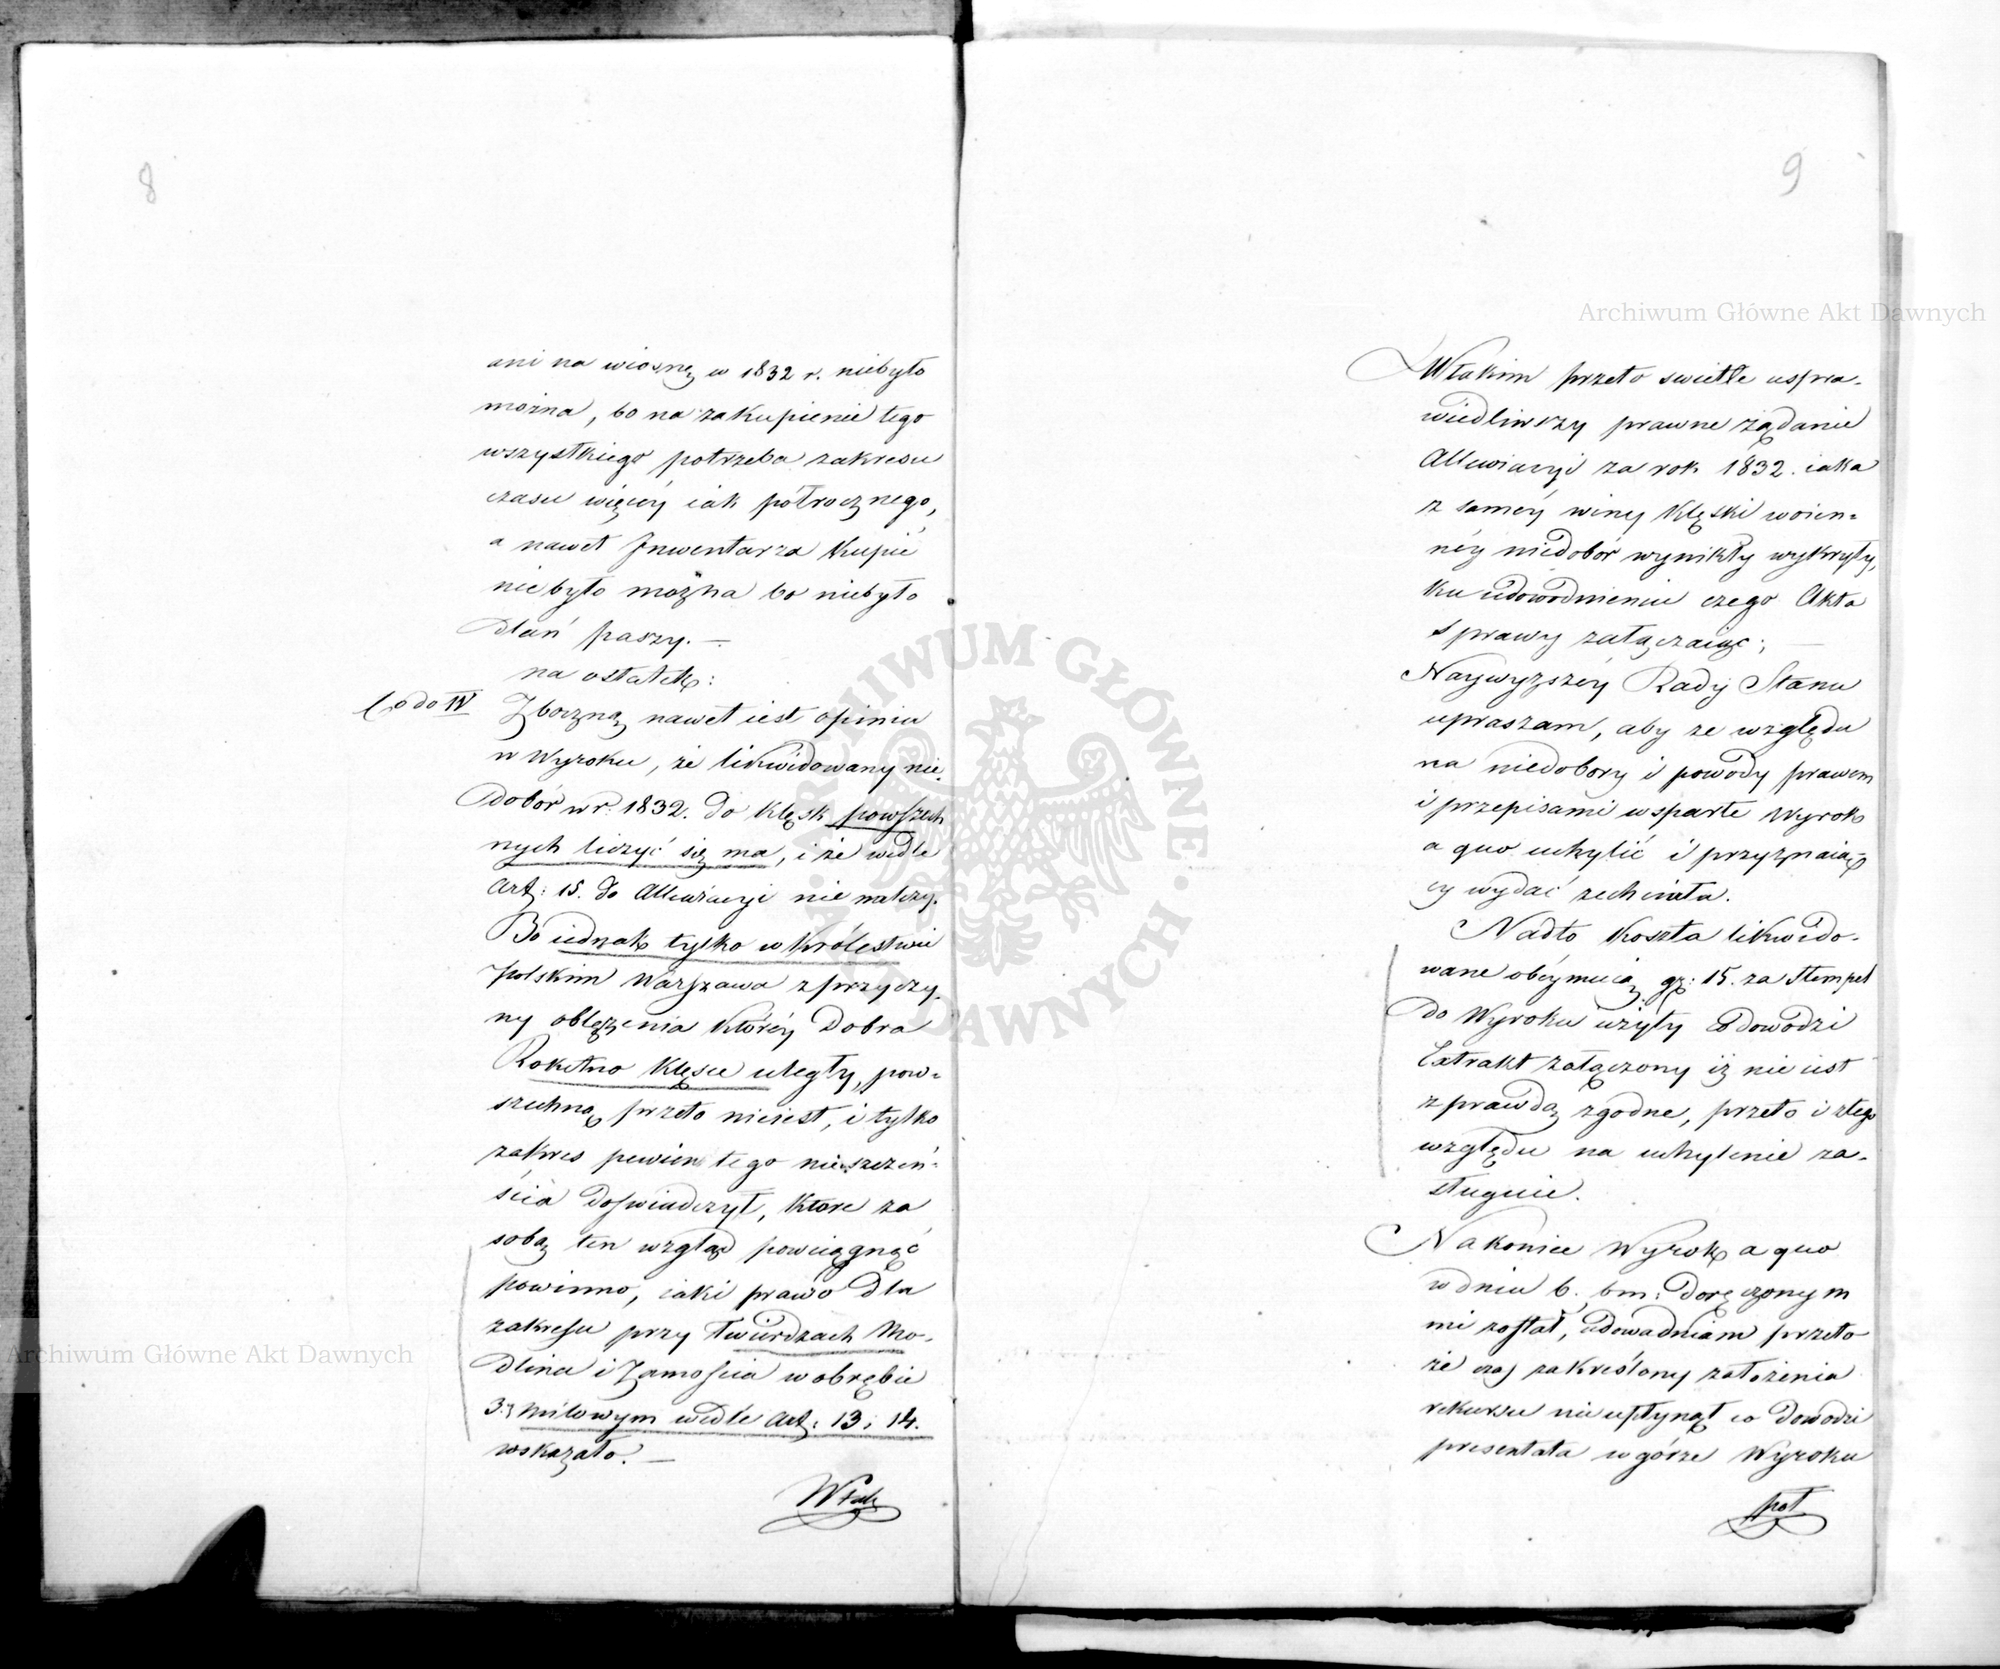 8
ani na wiosnę w 1832 r. niebyło
można, bo na zakupienie tego
wszystkiego potrzeba zakresu
czasu więcéy iak półrocznego,
a nawet Inwentarza kupić
nie było można bo niebyło
dlań paszy. —
na ostatek:
Co do IV Zboczną nawet iest opinia
w Wyroku, że likwidowany nie-
dobór w r. 1832. do klęsk powszech
nych liczyć się ma, i że wedle
Art: 15. do Allewiacyi nie należy.
Bo iednak tylko w Królestwie
Polskim Warszawa z przyczy-
ny oblężenia któréy Dobra
Rokitno klęsce uległy, pow-
szechną przeto nieiest, i tylko
zakres pewien tego nieszczę-
ścia doświadczył, które za
sobą ten wzgląd powciągnąć
powinno, iaki prawo dla
zakresu przy Twierdzach Mo-
dlina i Zamościa w obrębie
3. milowym wedle Art: 13 i 14.
wskazało. —
W tak
9
W takim przeto swietle uspra-
wiedliwszy prawne żądanie
Allewiacyi za rok 1832. iaka
z saméy winy klęski woien-
néy niedobór wynikły wykryły,
ku udowodnieniu czego Akta
sprawy załączaiąc; —
Naywyższéy Rady Stanu
upraszam, aby ze względu
na niedobory i powody prawem
i przepisami wsparte Wyrok
a quo uchylić i przyznaią-
cy wydać zechciała.
Nadto koszta likwido-
wane obéymuią gr: 15. za Stempel
do Wyroku użyty co dowodzi
Extrakt załączony iż nie iest
z prawdą zgodne, przeto i z tego
względu na uchylenie za-
sługuie.
Nakoniec Wyrok a quo
w dniu 6. bm: doręczonym
mi został, udowadniam przeto
że czas zakreślony założenia
rekursu nie upłynął co dowodzi
presentata w górze Wyroku
pol
Archiwum Główne Akt Dawnych
Archiwum Główne Akt Dawnych
ARCHIWUM GŁÓWNE AKT DAWNYCH